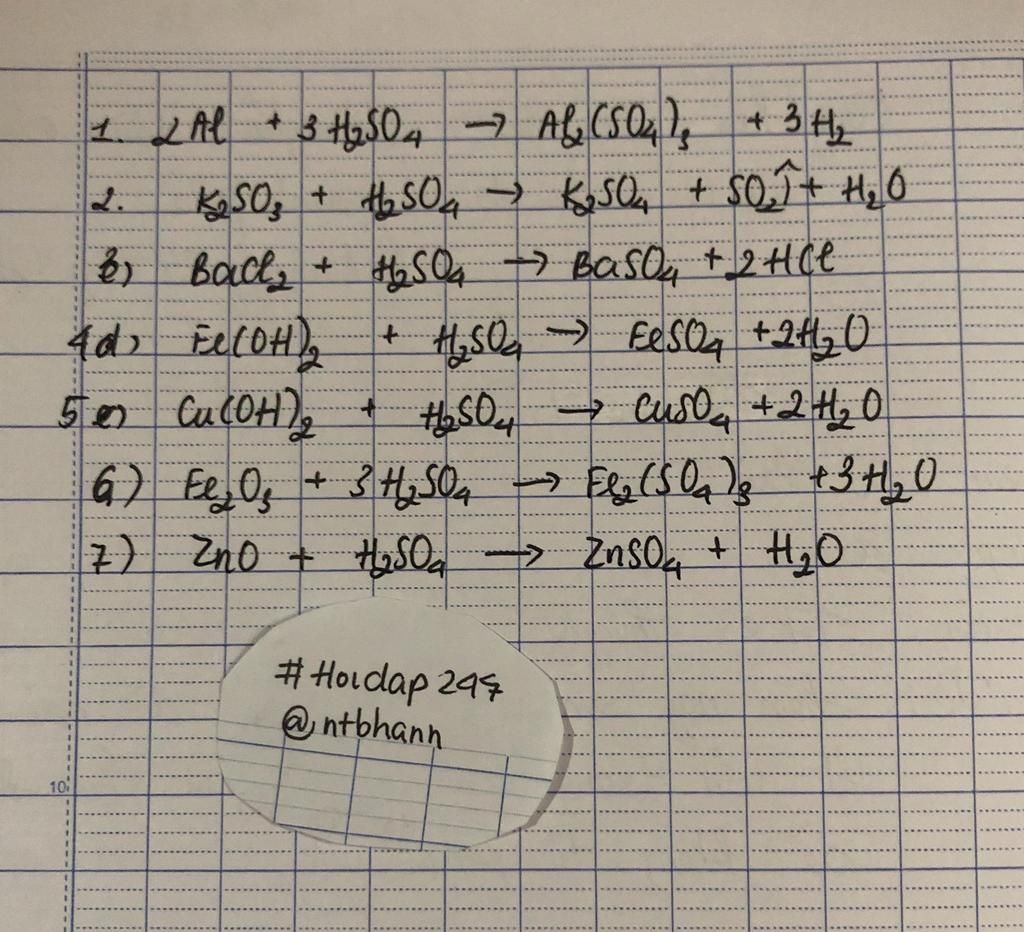 1. 2Al + 3H₂SO₄ → Al₂(SO₄)₃ + 3H₂
2. K₂SO₃ + H₂SO₄ → K₂SO₄ + SO₂↑ + H₂O
3) BaCl₂ + H₂SO₄ → BaSO₄ + 2HCl
4d) Fe(OH)₂ + H₂SO₄ → FeSO₄ + 2H₂O
5e) Cu(OH)₂ + H₂SO₄ → CuSO₄ + 2H₂O
6) Fe₂O₃ + 3H₂SO₄ → Fe₂(SO₄)₃ + 3H₂O
7) ZnO + H₂SO₄ → ZnSO₄ + H₂O
#Hoidap247
@ntbhann
10